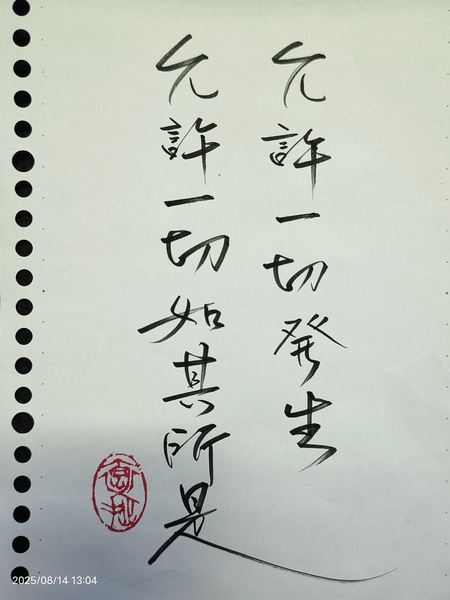 允許一切發生
允許一切如其所是
2025/08/14 13:04